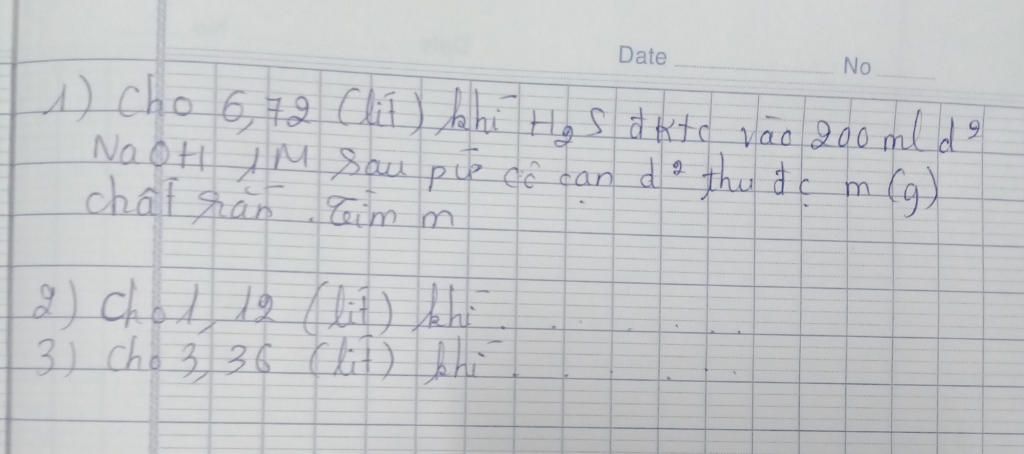 Date No
1) Cho 6,72 (lít) khí H₂S đktc vào 200 ml d²
NaOH 1M sau pứ cô cạn d² thu đc m (g)
chất rắn. Tìm m
2) Cho 1,12 (lít) khí . . . . . .
3) Cho 3,36 (lít) khí . . . . . .